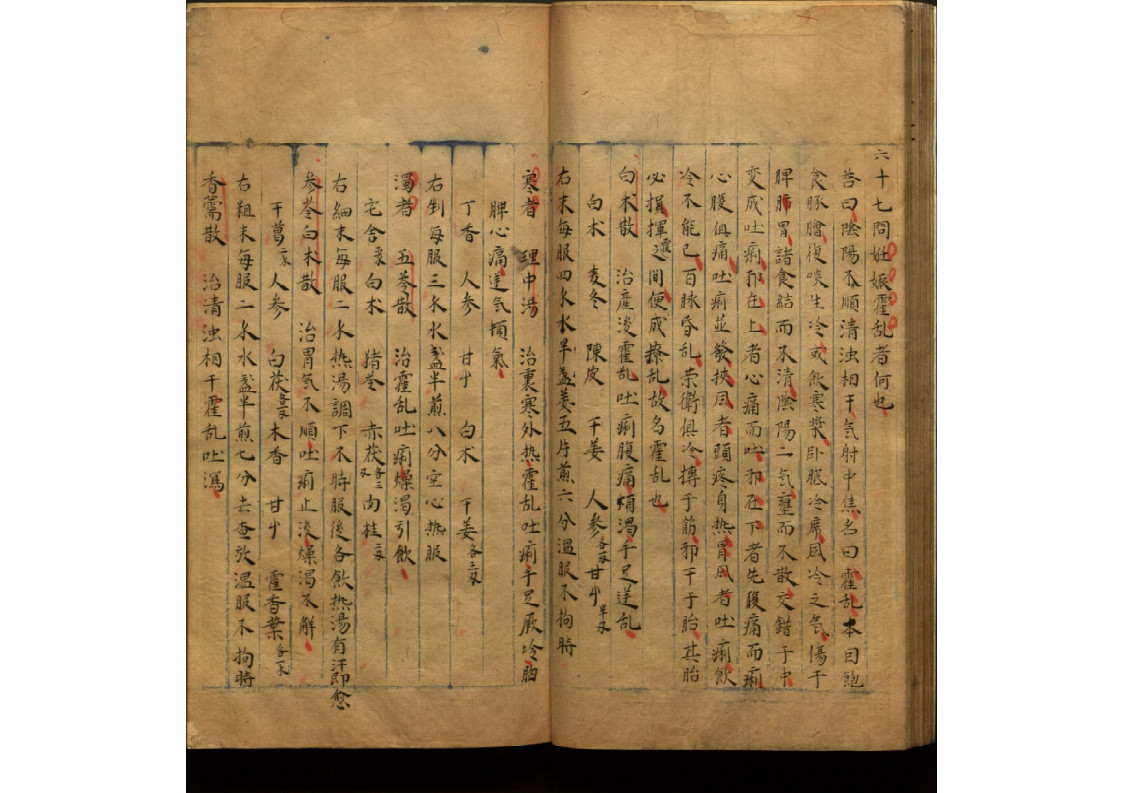 六十七問妊娠霍乱者何也
荅曰陰陽不順清浊相干气射中焦名曰霍乱本因飽
食豚膾復啖生冷或飲寒漿卧胀冷席风冷之气傷于
脾肺胃諸食結而不清陰陽二气壅而不散交錯于中
变成吐痢邪在上者心痛而吐邪在下者先腹痛而痢
心腹俱痛吐痢並發挾风者頭疼身热冒风者吐痢飲
冷不能已百脉昏乱荣衛俱冷搏于筋邪干于胎其胎
必損揮霍之間便成撩乱故名霍乱也
白术散 治産後霍乱吐痢腹痛煩渴手足逆乱
白术 麦冬 陳皮 干姜 人参各一百甘艹半
右末每服四水半盏姜五片煎六分温服不拘時
寒者 理中湯 治裏寒外热霍乱吐痢手足厥冷胸
脾心痛逆气短氣
丁香 人参 甘艹 白术 干姜各三
右剉每服三水水盏半煎八分空心热服
濁者 五苓散 治霍乱吐痢燥渴引飲
宅舍白术 猪苓 赤茯各二肉桂
右細末每服二热湯調下不時服後各飲热湯有汗即愈
参苓白术散 治胃气不順吐痢止後燥渴不解
干葛 人参 白茯木香 甘艹 霍香葉各一
右粗末每服二水盏半煎七分去查放温服不拘時
香薷散 治清浊相干霍乱吐瀉